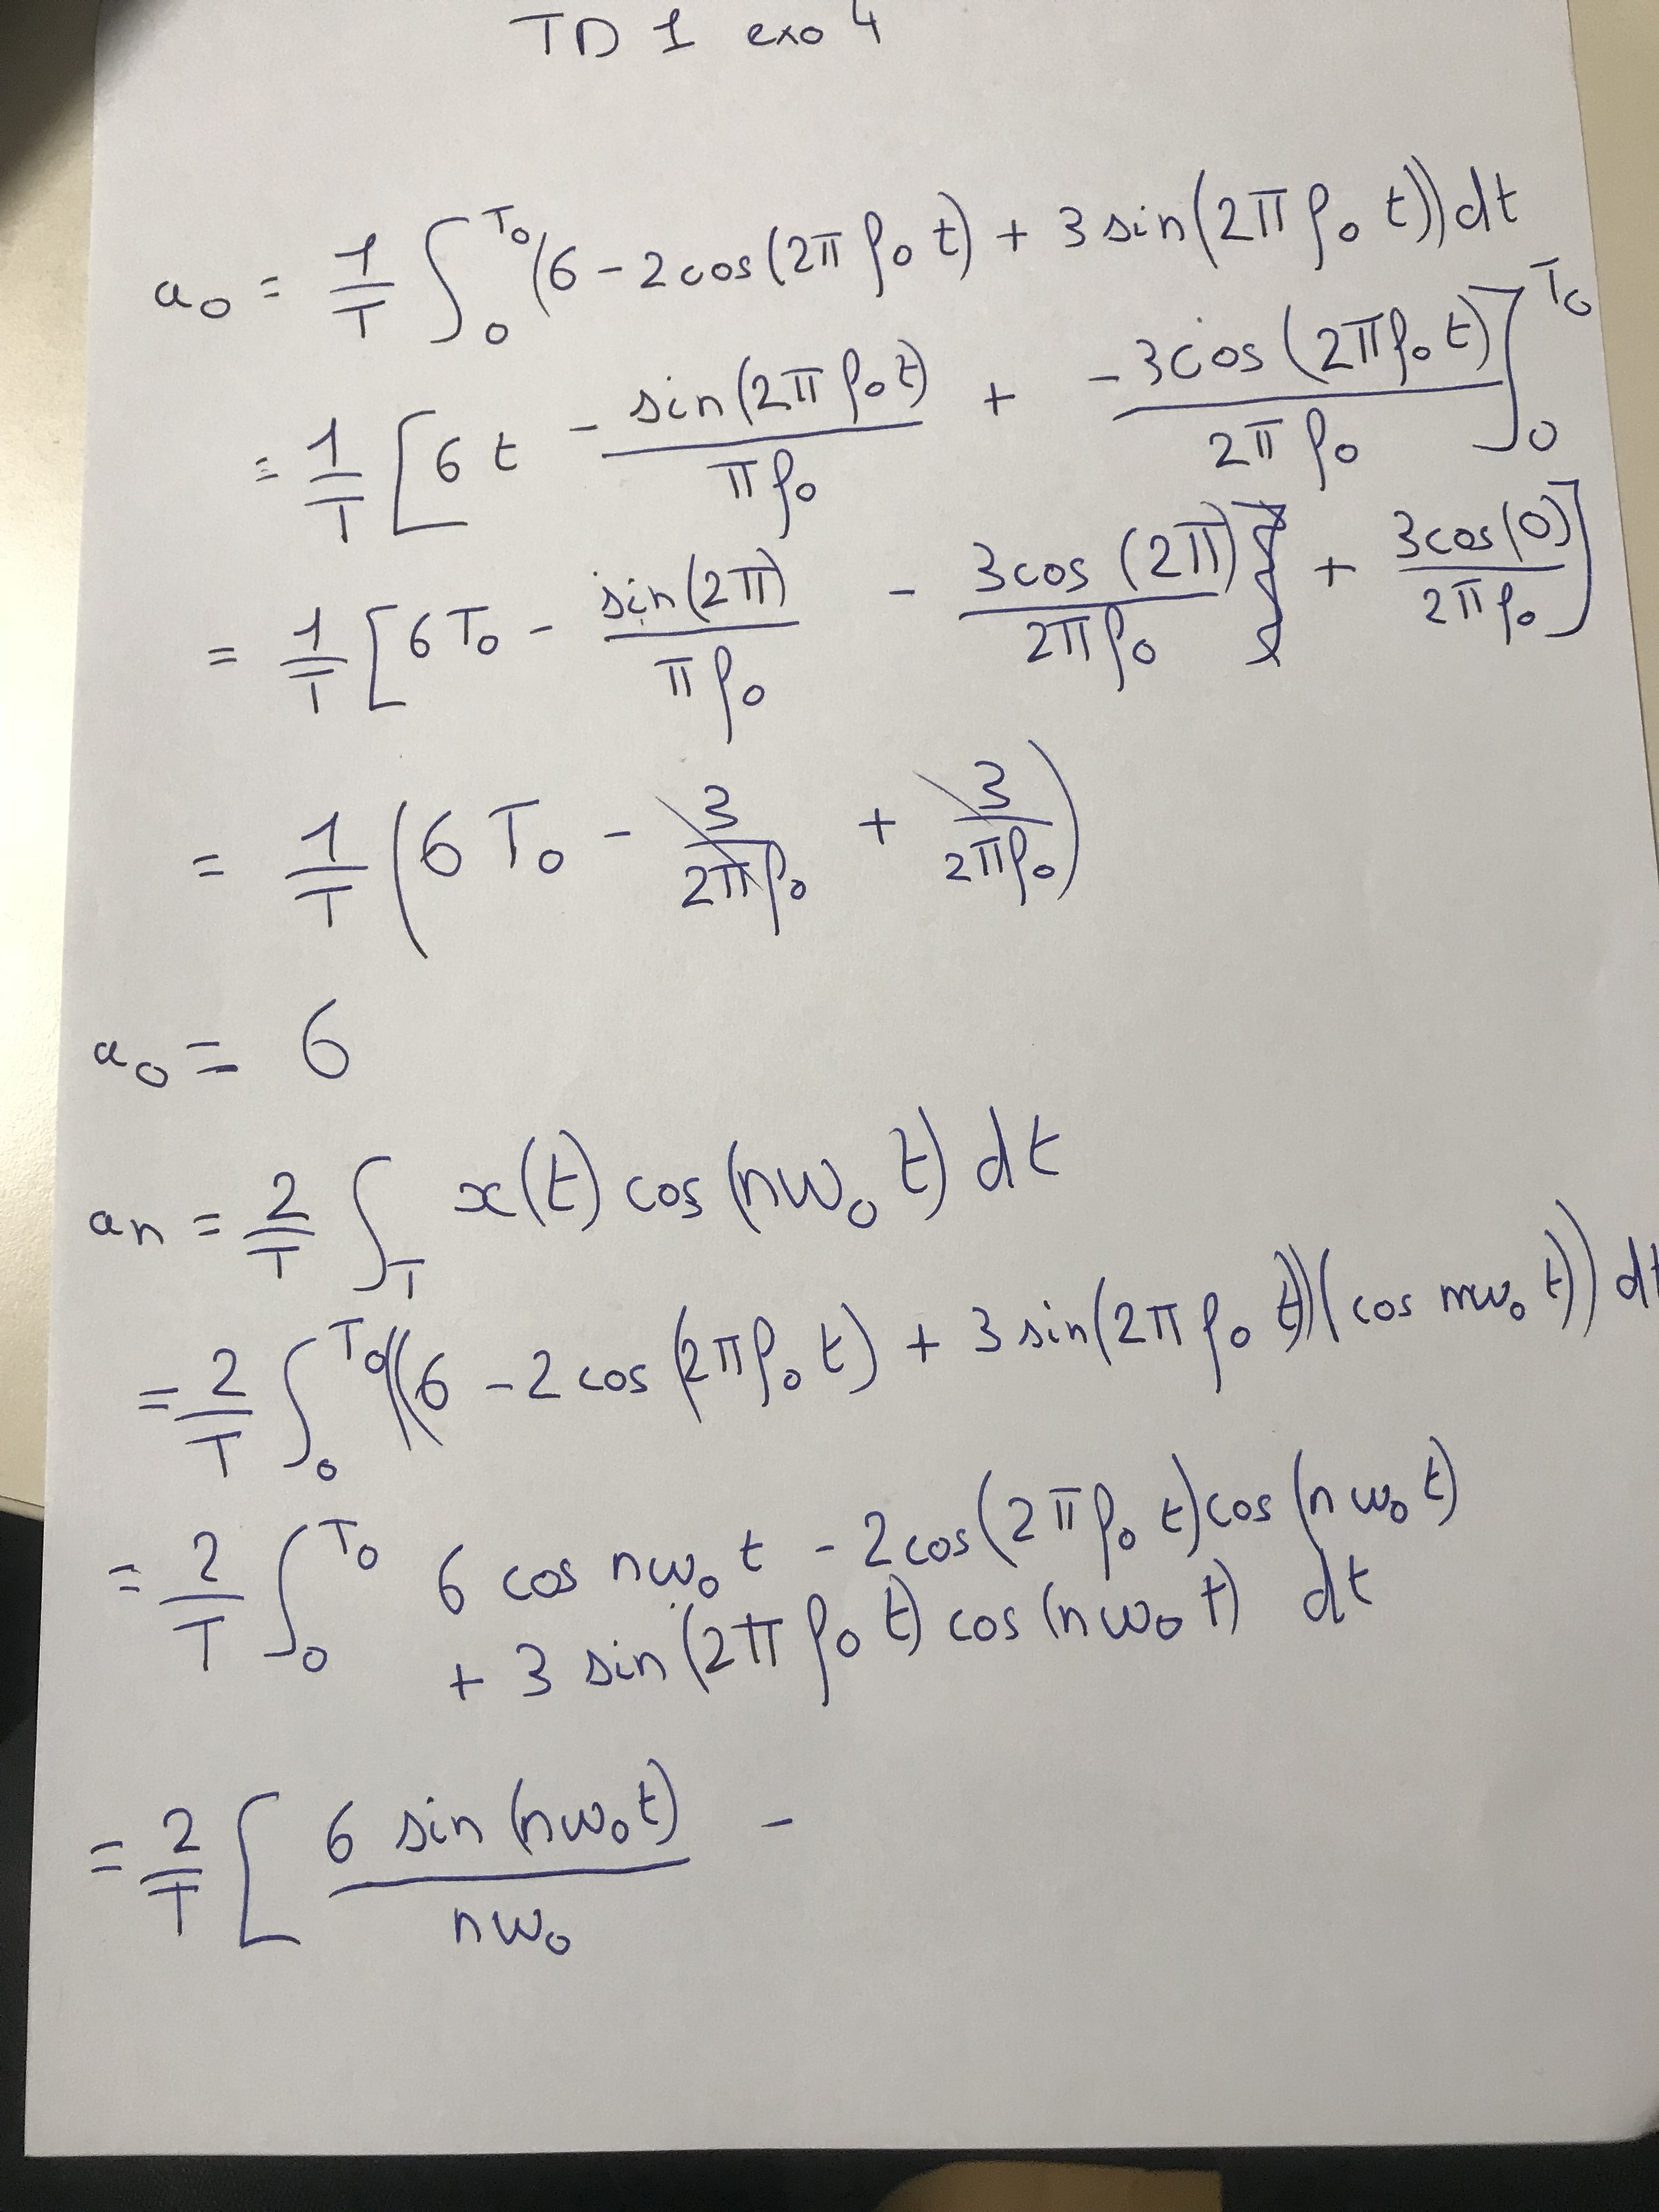 TD 1 exo 4
a₀ = 1/T ∫₀^T₀ (6 - 2cos(2π f₀ t) + 3 sin(2π f₀ t)) dt
= 1/T [6t - sin(2π f₀ t)/(π f₀) + -3cos(2π f₀ t)/(2π f₀)]₀^T₀
= 1/T [6T₀ - sin(2π)/(π f₀) - 3cos(2π)/(2π f₀) + 3cos(0)/(2π f₀)]
= 1/T (6T₀ - 3/(2π f₀) + 3/(2π f₀))
a₀ = 6
an = 2/T ∫_T x(t) cos(nω₀ t) dt
= 2/T ∫₀^T₀ ((6 - 2cos(2π f₀ t) + 3 sin(2π f₀ t))(cos nω₀ t)) dt
= 2/T ∫₀^T₀ 6 cos nω₀ t - 2cos(2π f₀ t) cos(nω₀ t)
+ 3 sin(2π f₀ t) cos(nω₀ t) dt
= 2/T [6 sin(nω₀ t)/(nω₀) -